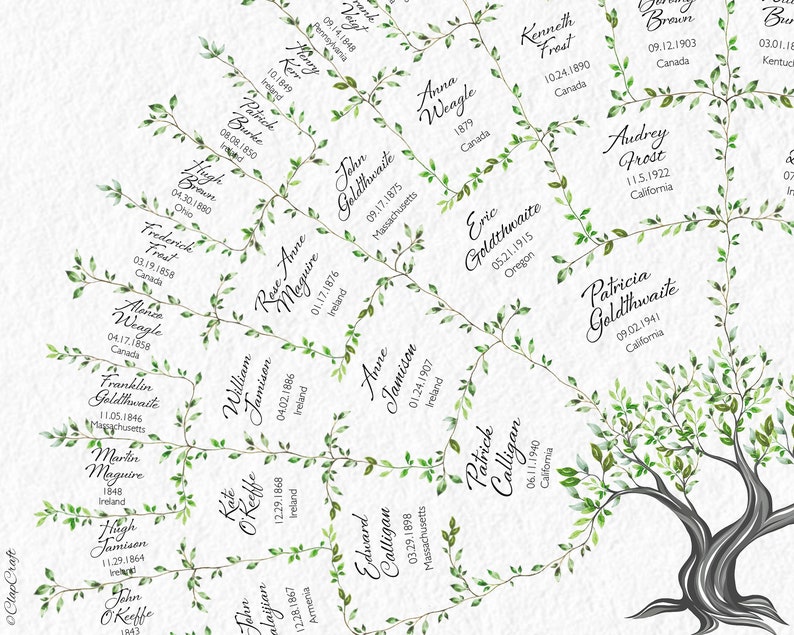 Frank
Voigt
09.14.1848
Pennsylvania
Henry
Kerr
10.1849
Ireland
Patrick
Burke
08.08.1850
Ireland
Hugh
Brown
04.30.1880
Ohio
Frederick
Frost
03.19.1858
Canada
Alonzo
Weagle
04.17.1858
Canada
Franklin
Goldthwaite
11.05.1846
Massachusetts
Martin
Maguire
1848
Ireland
Hugh
Jamison
11.29.1864
Ireland
John
O'Keeffe
1843
Kenneth
Frost
10.24.1890
Canada
Brown
09.12.1903
Canada
03.01.18
Kentuck
Anna
Weagle
1879
Canada
John
Goldthwaite
09.17.1875
Massachusetts
Rose Anne
Maguire
01.17.1876
Ireland
William
Jamison
04.02.1886
Ireland
Kate
O'Keeffe
12.29.1868
Ireland
John
alaijian
12.28.1867
Armenia
Audrey
Frost
11.5.1922
California
Eric
Goldthwaite
05.21.1915
Oregon
Anne
Jamison
01.24.1907
Ireland
Edward
Calligan
03.29.1898
Massachusetts
Patricia
Goldthwaite
09.02.1941
California
Patrick
Calligan
06.11.1940
California
©ClapCraft